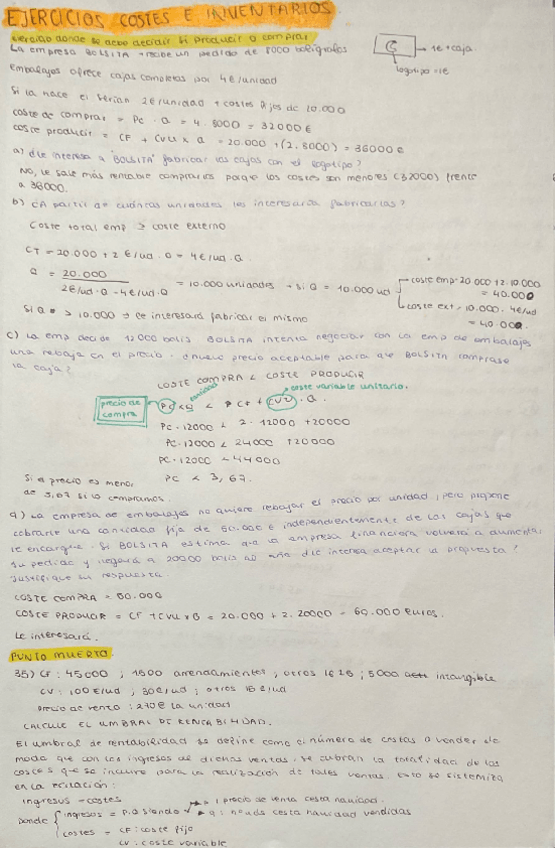 EJERCICIOS COSTES E INVENTARIOS
ejercicio donde se debe decidir si producir o comprar
La empresa BOLSITA recibe un pedido de 8000 bolígrafos
→ 1€ + caja
logotipo = 1€
embalajes ofrece cajas completas por 4€/unidad
Si la hace el serian 2€/unidad + costes fijos de 20.000
coste de comprar = Pc · Q = 4 · 8000 = 32000 €
coste producir = CF + CVu x Q = 20.000 + (2 · 8000) = 36000 €
a) ¿le interesa a BOLSITA fabricar las cajas con el logotipo?
NO, le sale más rentable comprarlos porque los costes son menores (32000) frente
a 36000.
b) ¿A partir de cuántas unidades les interesaría fabricarlas?
Coste total emp > coste externo
CT = 20.000 + 2 €/ud · Q = 4€/ud · Q
Q = 20.000
2€/ud · Q - 4€/ud · Q
= 10.000 unidades → si Q = 10.000 ud
coste emp = 20.000 + 2 · 10.000
= 40.000
coste ext = 10.000 · 4€/ud
= 40.000.
Si Q > 10.000 → le interesará fabricar el mismo
c) La emp decide 12000 bolis BOLSITA intenta negociar con la emp de embalajes
una rebaja en el precio. ¿nuevo precio aceptable para que BOLSITA comprase
la caja?
COSTE COMPRA < COSTE PRODUCIR
precio de compra
cantidad
coste variable unitario.
Pc · 12000 < 2 · 12000 + 20000
Pc · 12000 < 24000 + 20000
Pc · 12000 < 44000
Pc < 3,67.
Si el precio es menor
de 3,67 si lo compramos.
d) La empresa de embalajes no quiere rebajar el precio por unidad, pero propone
cobrarle una cantidad fija de 60.000 € independientemente de las cajas que
le encargue. Si BOLSITA estima que la empresa financiera volverá a aumentar
su pedido y llegará a 20000 bolis al año ¿le interesa aceptar la propuesta?
Justifique su respuesta
COSTE COMPRA = 60.000
COSTE PRODUCIR = CF + CVu x Q = 20.000 + 2 · 20000 = 60.000 euros.
Le interesará.
PUNTO MUERTO.
35) CF: 45000 ; 1500 arrendamientos, otros ; 5000 intangible
CV: 100€/ud ; 30€/ud ; otros 16 €/ud
precio de venta: 270€ la unidad
CALCULE EL UMBRAL DE RENTABILIDAD.
El umbral de rentabilidad se define como el número de cestas a vender de
modo que con los ingresos de dichas ventas, se cubran la totalidad de los
costes que se incurre para la realización de tales ventas. Esto se sistematiza
en la ecuación:
ingresos = costes
donde ingresos = p·q siendo
p: precio de venta cesta navidad.
q: nº uds cesta navidad vendidas
costes = CF: coste fijo
CV: coste variable